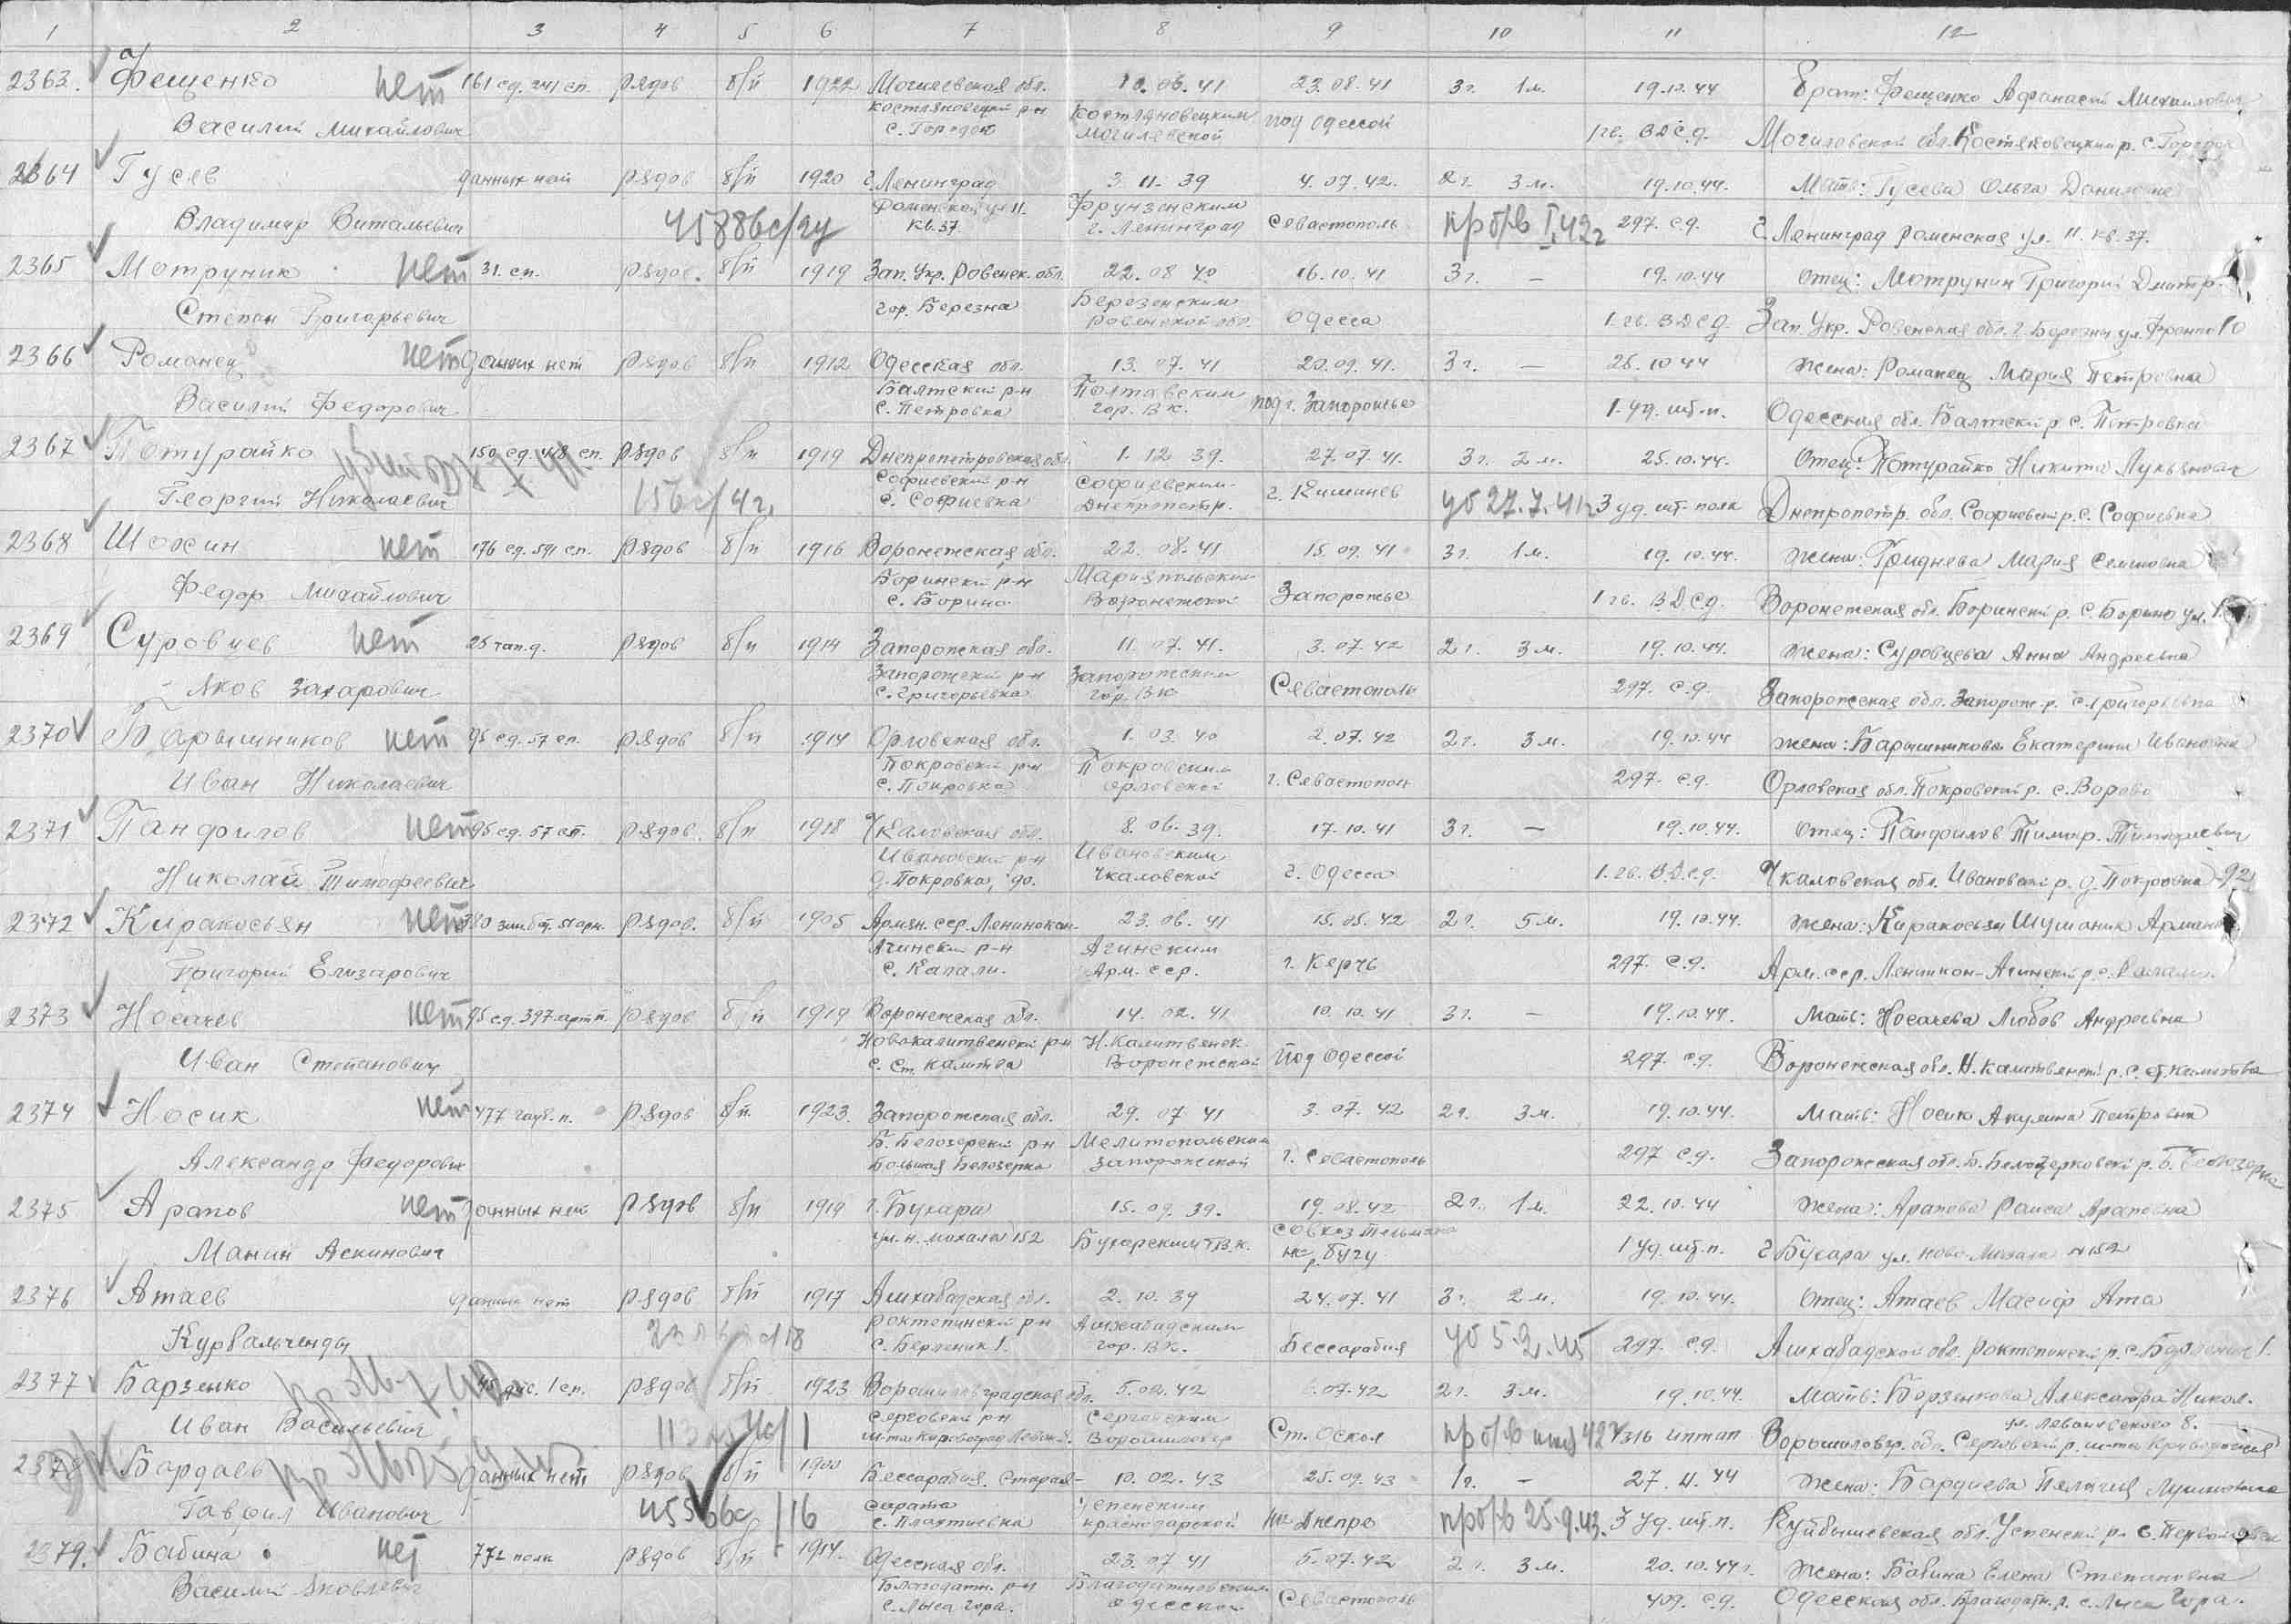 1 2 3 4 5 6 7 8 9 10 11 12
2363. Фещенко нет 161 сд. 241 сп. рядов б/п 1922 Могилевская обл. 10.06.41 23.08.41 3г. 1м. 19.10.44 Брат: Фещенко Афанасий Михайлович
Василий Михайлович Костяновецкий р-н с. Городок Костяновецким Могилевской под Одессой 1 гв. ВДСД. Могилевской обл. Костяковецкий р. с. Городок
2364 Гусев данных нет рядов б/п 1920 г. Ленинград 3.11.39 4.07.42. 2г. 3м. 19.10.44. Мать: Гусева Ольга Даниловна
Владимир Витальевич 45886с/24 Роменская ул 11. кв. 37 Фрунзенским г. Ленинград Севастополь пр б/в 297. с.д. г. Ленинград Роменская ул. 11. кв. 37.
2365 Мотруник нет 31. сп. рядов. б/п 1919 Зап. Укр. Ровенск. обл. 22.08.40 16.10.41 3г. — 19.10.44 отец: Мотруник Григорий Дмитр.
Степан Григорьевич гор. Березна Березенским Ровенской обл. Одесса 1. гв. ВДСД. Зап. Укр. Ровенская обл. г. Березны ул. Франко 10
2366 Романец нет данных нет рядов б/п 1912 Одесская обл. 13.07.41 20.09.41. 3г. — 26.10.44 жена: Романец Мария Петровна
Василий Федорович Балтский р-н с. Петровка Полтавским гор. ВК. под г. Запорожье 1. уд. шт.п. Одесская обл. Балтский р. с. Петровка
2367 Потурайко 150 сд. 418 сп. рядов б/п 1919 Днепропетровская обл. 1.12.39. 27.07.41. 3г. 2м. 25.10.44. Отец: Потурайко Никита Лукьянович
Георгий Николаевич 156с/42 Софиевский р-н с. Софиевка Софиевским Днепропетр. г. Кишинев уб 27.7.41г 3 уд. шт. полк Днепропетр. обл. Софиевский р. с. Софиевка
2368 Шокин нет 176 сд. 591 сп. рядов б/п 1916 Воронежская обл. 22.08.41 15.09.41 3г. 1м. 19.10.44. жена: Гриднева Мария Семеновна
Федор Михайлович Боринский р-н с. Борино Мариупольским Воронежской Запорожье 1 гв. ВДСД Воронежская обл. Боринский р. с. Борино ул.
2369 Суровцев нет 25 чап.д. рядов б/п 1914 Запорожская обл. 11.07.41. 3.07.42 2г. 3м. 19.10.44. жена: Суровцева Анна Андреевна
Яков Захарович Запорожский р-н с. Григорьевка Запорожским гор. ВК Севастополь 297. с.д. Запорожская обл. Запорож. р. с. Григорьевка
2370 Барышников нет 95 сд. 57 сп. рядов б/п 1914 Орловская обл. 1.03.40 2.07.42 2г. 3м. 19.10.44 жена: Барышникова Екатерина Ивановна
Иван Николаевич Покровский р-н с. Покровка Покровским Орловской г. Севастополь 297. с.д. Орловская обл. Покровский р. с. Ворово
2371 Панфилов нет 95 сд. 57 сп. рядов. б/п 1918 Чкаловская обл. 8.06.39. 17.10.41 3г. — 19.10.44. отец: Панфилов Тимофей
Николай Тимофеевич Ивановский р-н д. Покровка, Ивановским Чкаловской г. Одесса 1. гв. В.Д.С.Д. Чкаловская обл. Ивановский р. д. Покровка 92
2372 Киракосьян нет рядов. б/п 1905 Армян. сср. Ленинокан- 23.06.41 15.05.42 2г. 5м. 19.10.44 жена: Киракосьян Шушаник
Григорий Елизарович Агинский р-н с. Капали. Агинским Арм. сср. г. Керчь 297. с.д. Арм. сср. Ленинкон-Агинский р.
2373 Носачев нет 95 сд. 397 арт.п. рядов б/п 1919 Воронежская обл. 14.02.41 10.10.41 3г. — 19.10.44. Мать: Носачева Любов Андреевна
Иван Степанович Новокалитвенский р-н с. Ст. Калитва Н. Калитвянск. Воронежской под Одессой 297. с.д. Воронежская обл. Н. Калитвянский р. с. ст. Калитва
2374 Носик нет 477 гауб.п. рядов б/п 1923 Запорожская обл. 29.07.41 3.07.42 2г. 3м. 19.10.44. Мать: Носик Акулина Петровна
Александр Федорович Б. Белозерский р-н Большая Белозерка Мелитопольским Запорожской г. Севастополь 297 с.д. Запорожская обл. Б. Белозерковский р. Б. Белозерка
2375 Арапов нет данных нет рядов б/п 1919 г. Бухара 15.09.39. 19.08.42 2г. 1м. 22.10.44 жена: Арапова Раиса Араповна
Манин Аскинович ул. н. махала 152 Бухарским ГВК. совхоз Тельмана на р. Бугу 1 уд. шт.п. г. Бухара ул. Ново Махала №152
2376 Атаев данных нет рядов б/п 1917 Ашхабадская обл. 2.10.39 24.07.41 3г. 2м. 19.10.44. отец: Атаев Масиф Ата
Курвальченды роктепинский р-н с. Берленик 1. Ашхабадским гор. ВК. Бессарабия уб 5.2.45 297. с.д. Ашхабадской обл. роктепинский р.
2377 Барзенко 1 сп. рядов б/п 1923 Ворошиловградская обл. 5.02.42 .07.42 2г. 3м. 19.10.44. Мать: Борзенкова Александра Никол.
Иван Васильевич Серговский р-н Серговским Ст. Оскол пр б/в 1316 иптап ул. Леваневского 8. Ворошиловгр. обл. Серговский р.
2378 Бардаев данных нет рядов б/п 1900 Бессарабия. Старая- 10.02.43 25.09.43 1г. - 27.11.44 жена: Бардиева Пелагия
Гаврил Иванович /16 сарата с. Плахтиевка Успенским краснодарской на Днепре пр б/в 25.9.43. 3 уд. шт.п. Куйбышевская обл. Успенский р.
2379. Бабина нет 772 полк рядов б/п 1914. Одесская обл. 23.07.41 5.07.42 2г. 3м. 20.10.44г. жена: Бабина Елена Степановна
Василий Яковлевич Благодатн. р-н с. Лыса Гора. Благодатновским Одесской Севастополь 409. с.д. Одесская обл. Благодатн. р. с. Лыса Гора.